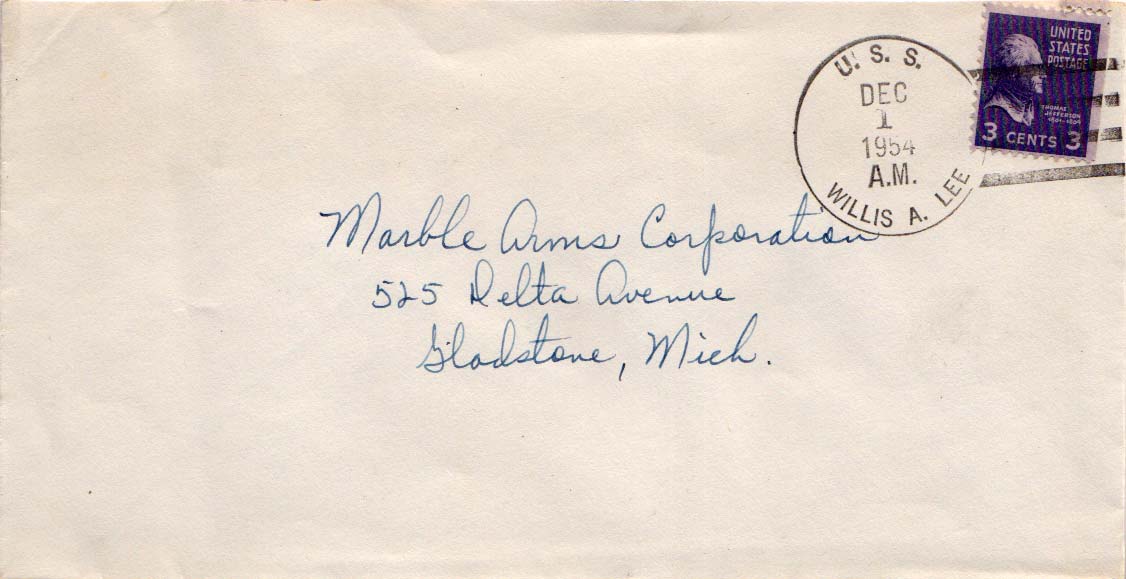 U. S. S.
DEC
1
1954
A.M.
WILLIS A. LEE
UNITED
STATES
POSTAGE
THOMAS
JEFFERSON
1801-1809
3 CENTS 3
Marble Arms Corporation
525 Delta Avenue
Gladstone, Mich.